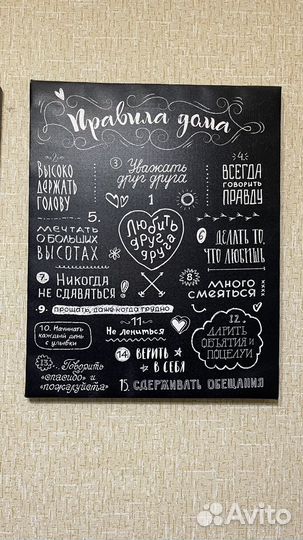 Правила дома
2.
Высоко
держать
голову
3 Уважать
друг друга
4.
Всегда
говорить
правду
1
Любить
друг
друга
5.
Мечтать
о больших
высотах
6 Делать то,
что любишь
7. Никогда
не сдаваться!
8.
Много
смеяться
хххх
9. Прощать, даже когда трудно
10. Начинать
каждый день
с улыбки
11
Не лениться
12.
Дарить
объятия и
поцелуи
13. Говорить
«спасибо» и
«пожалуйста»
14 Верить
в себя
15. Сдерживать обещания
Avito